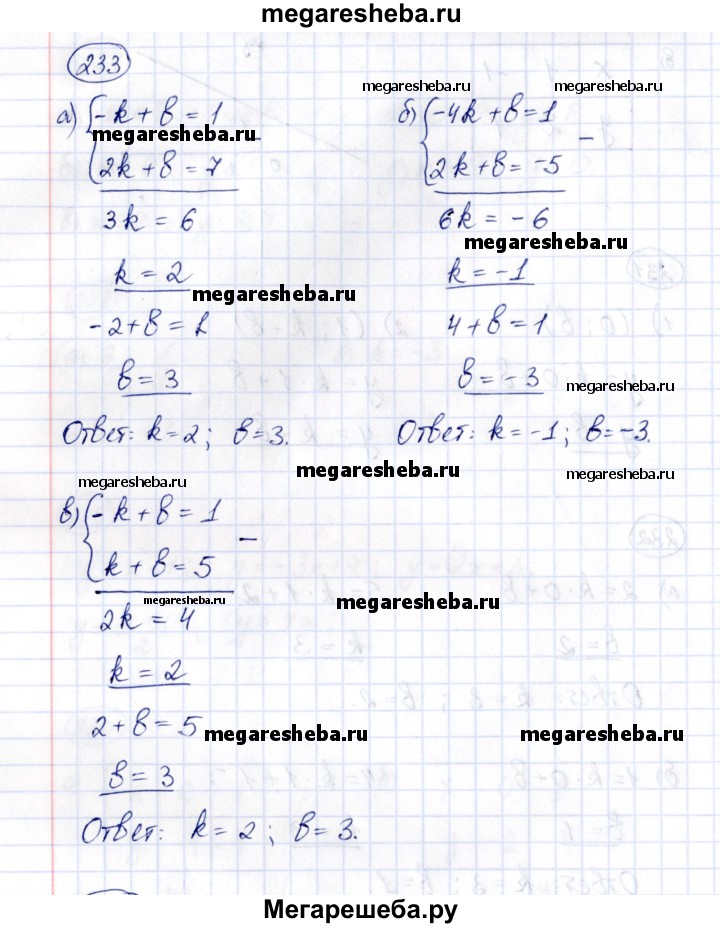 megaresheba.ru
233
а) { -k + b = 1
megaresheba.ru
2k + b = 7
3k = 6
k = 2
megaresheba.ru
-2 + b = 1
b = 3
Ответ: k = 2; b = 3.
megaresheba.ru
б) { -4k + b = 1
2k + b = -5
6k = -6
megaresheba.ru
k = -1
4 + b = 1
b = -3
megaresheba.ru
Ответ: k = -1; b = -3.
megaresheba.ru
megaresheba.ru
megaresheba.ru
в) { -k + b = 1
k + b = 5
megaresheba.ru
megaresheba.ru
2k = 4
k = 2
2 + b = 5
megaresheba.ru
megaresheba.ru
b = 3
Ответ: k = 2; b = 3.
Мегарешеба.ру